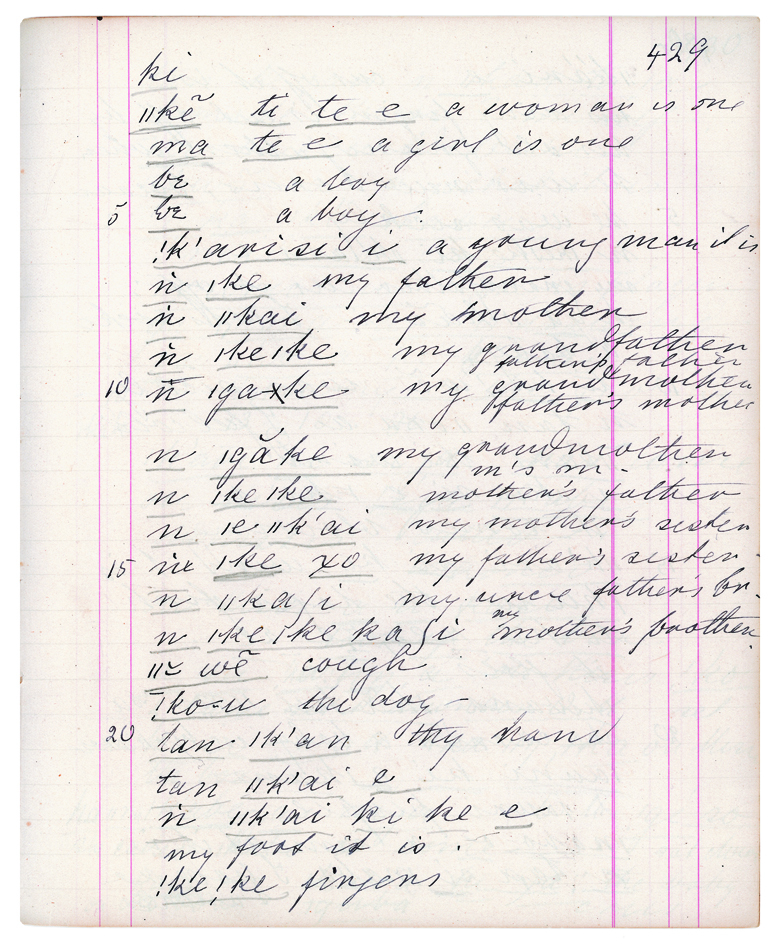 429
ki
ǁkẽ ti te e a woman is one
ma te e a girl is one
bɛ a boy
5 bɛ a boy.
!k'arisi i a young man it is
ṅ ǀke my father
ṅ ǁkai my mother
ṅ ǀkeǀke my grandfather
father's father
10 n̄ ǀgaxke my grandmother
father's mother
n ǀgăke my grandmother
m's m.
n ǀkeǀke mother's father
n ǀe ǁk'ai my mother's sister
15 ǀke xo my father's sister
n ǁkaʃi my uncle father's br.
n ǀkeǀke kaʃi my mother's brother
wẽ cough
!ko=u the dog
20 tan ǀk'an thy hand
tan ǁk'ai e
ṅ ǁk'ai ki ke e
my foot it is.
!ke!ke fingers